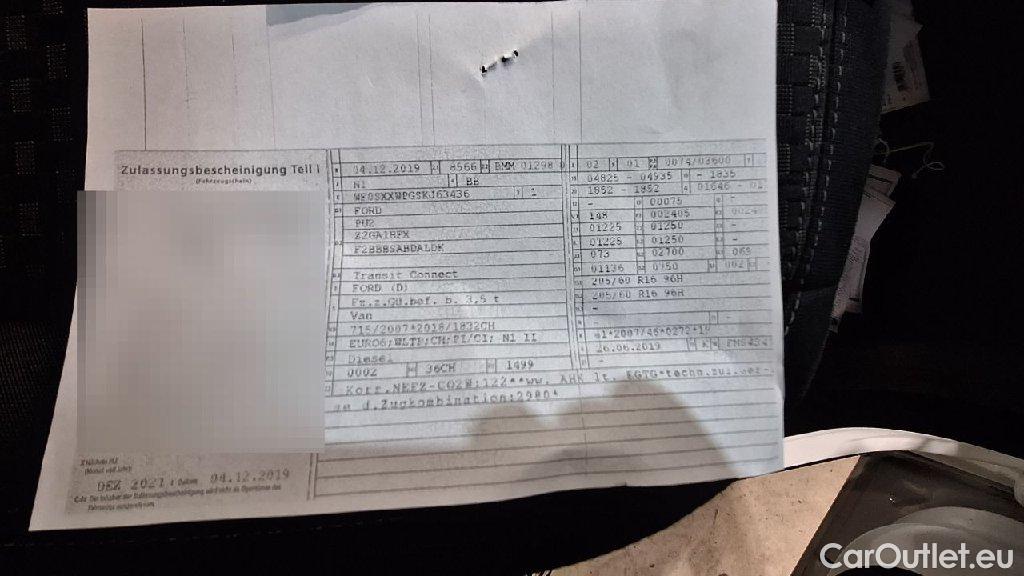 Zulassungsbescheinigung Teil I
(Fahrzeugschein)
04.12.2019 8566 BMM 01298 0
N1 BB
FORD
PU2
Z2GA1BFX
F2BBBSABDALDK
Transit Connect
FORD (D)
Fz.z.Gü.bef. b. 3,5 t
Van
715/2007*2018/1832CH
EURO6;WLTP;CH;PI/CI; N1 II
Diesel
0002 36CH 1499
02 01 0074/03600
04825 - 04935 - 1835
1852 - 1852 01646 - 01
- 00075 -
148 002405
01225 01250 -
01225 01250 -
073 02700 069
01136 0950 002
205/60 R16 96H
205/60 R16 96H
-
- -
26.06.2019 K
-
Korr.NEFZ-CO2W:122**ww. AHK lt. EGTG*techn.zul.Ges-
d.Zugkombination:2980*
DEZ 2021 Datum 04.12.2019
CarOutlet.eu